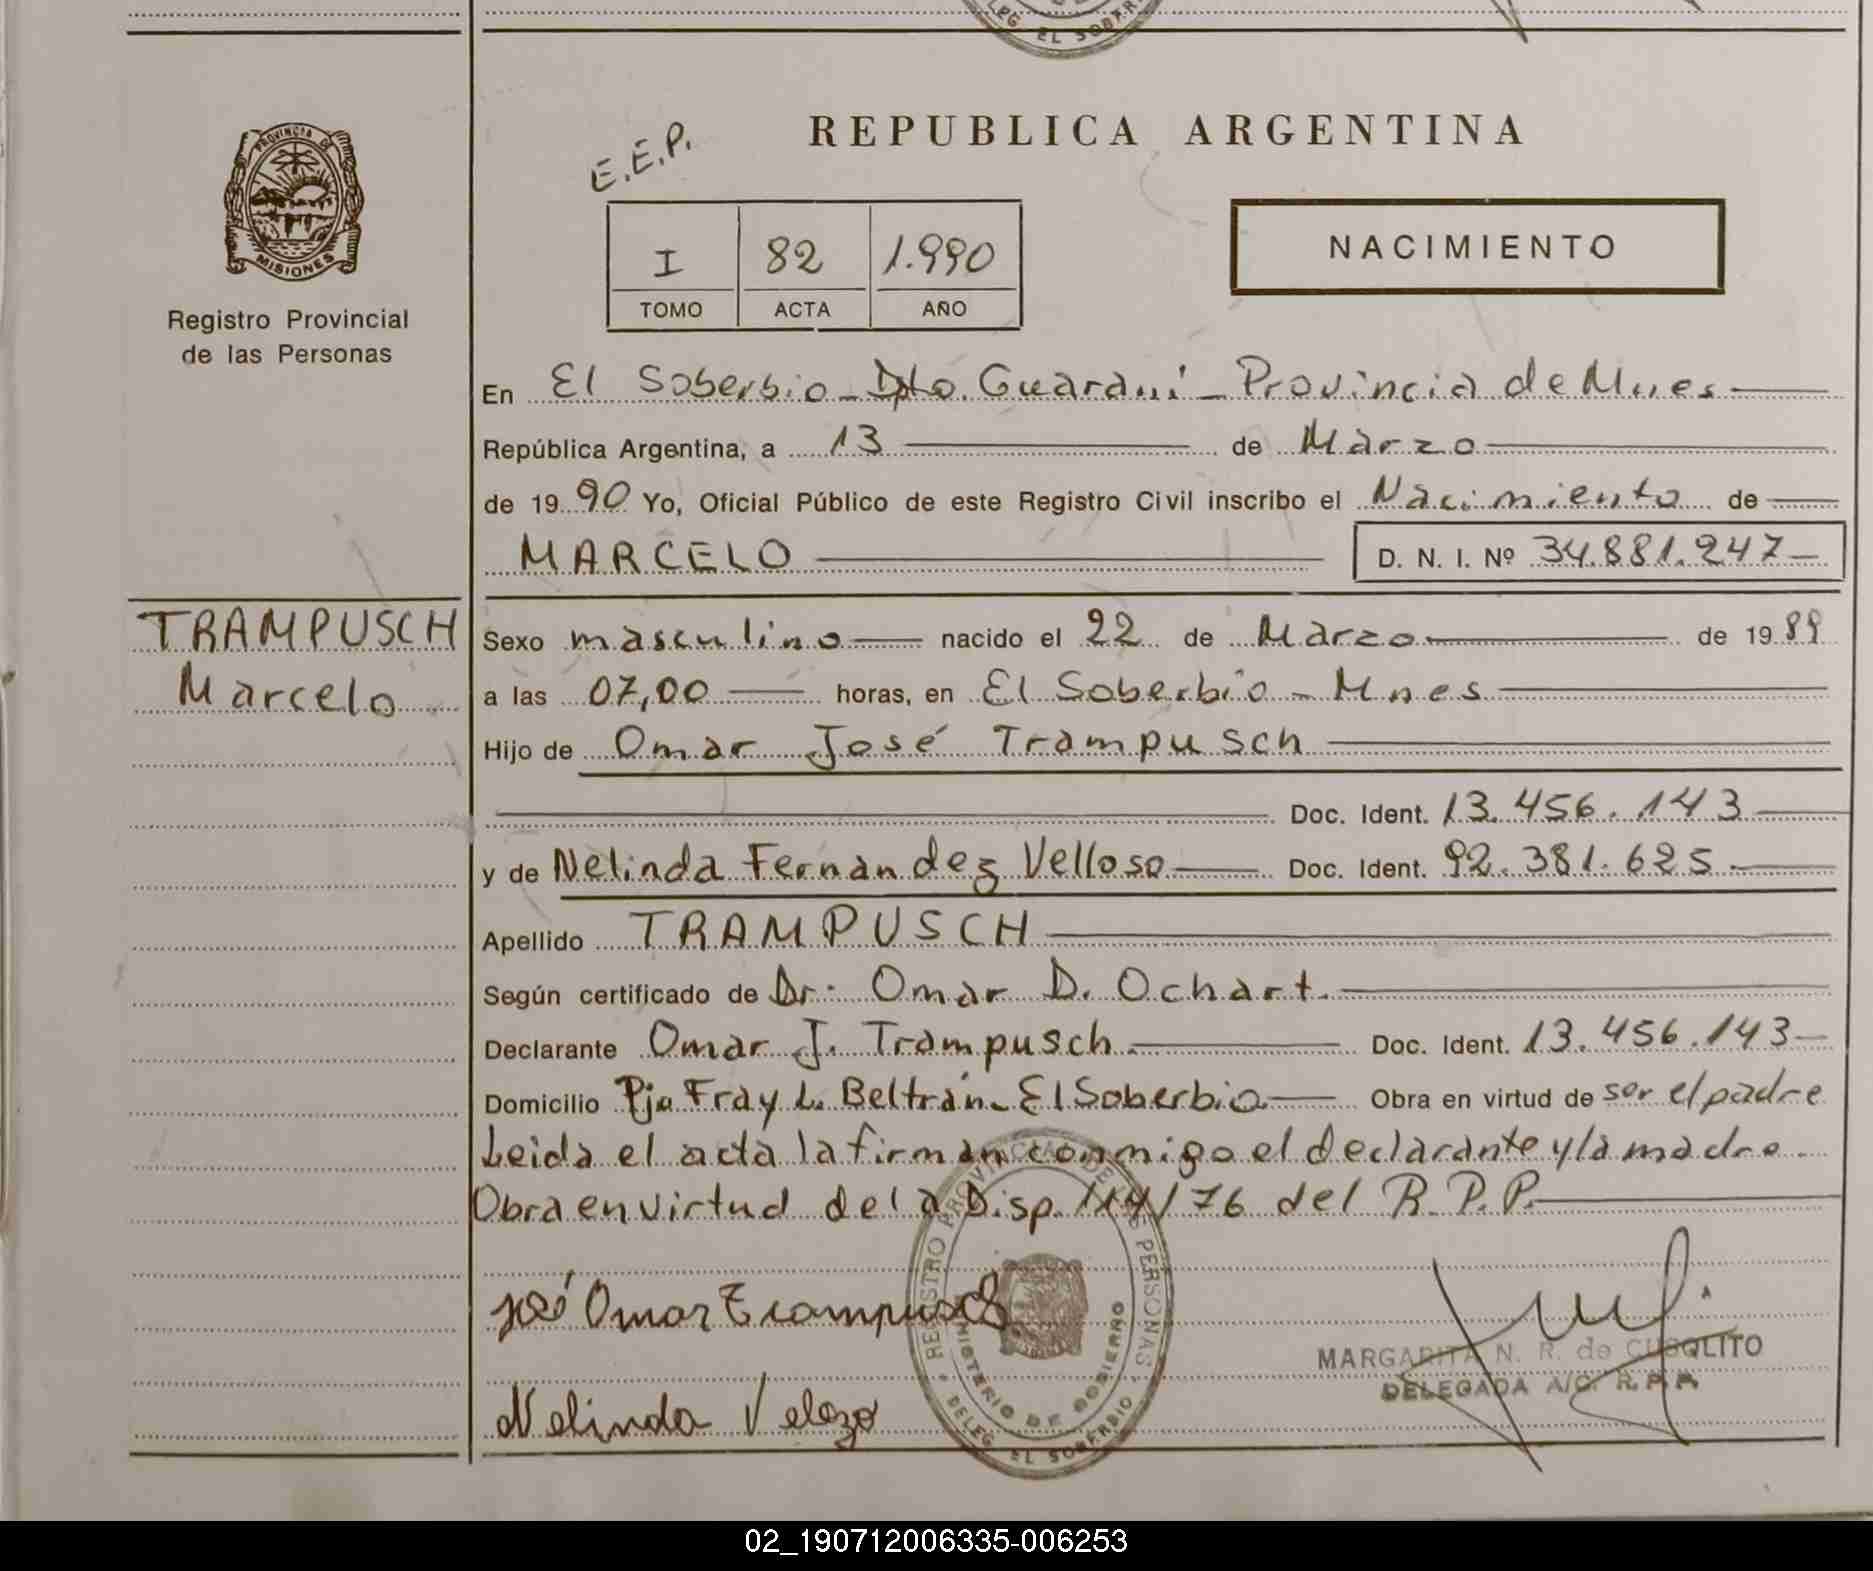 LEG. EL SOBERB
PROVINCIA DE
MISIONES
Registro Provincial
de las Personas
TRAMPUSCH
Marcelo
REPUBLICA ARGENTINA
E.E.P.
I 82 1.990
TOMO ACTA AÑO
NACIMIENTO
En El Soberbio - Dpto. Guaraní - Provincia de Mnes
República Argentina, a 13 de Marzo
de 1990 Yo, Oficial Público de este Registro Civil inscribo el Nacimiento de
MARCELO D. N. I. Nº 34.881.247
Sexo masculino nacido el 22 de Marzo de 1989
a las 07,00 horas, en El Soberbio - Mnes
Hijo de Omar José Trampusch
Doc. Ident. 13.456.143
y de Nelinda Fernandez Velloso Doc. Ident. 92.381.625
Apellido TRAMPUSCH
Según certificado de Dr. Omar D. Ochart.
Declarante Omar J. Trampusch. Doc. Ident. 13.456.143
Domicilio Pje Fray L. Beltrán - El Soberbio Obra en virtud de ser el padre
Leida el acta la firman conmigo el declarante y la madre.
Obra en virtud de la Disp. 114/76 del R.P.P.
José Omar Trampusch
Nelinda Velozo
REGISTRO PROVINCIAL DE LAS PERSONAS
MINISTERIO DE GOBIERNO
DELEG. EL SOBERBIO
MARGARITA N. R. de CUSOLITO
DELEGADA A/C. R.P.P.
02_190712006335-006253